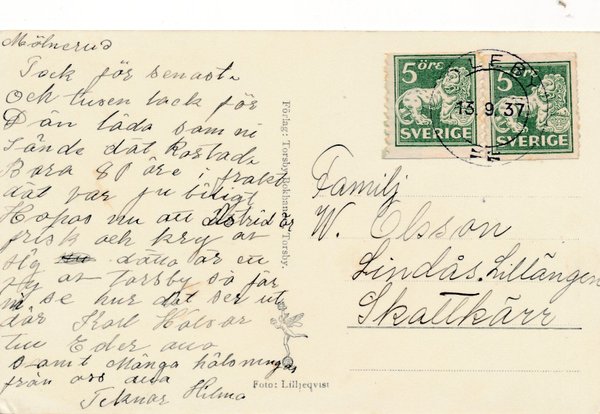 Mölnerud
Tack för senast
Och tusen tack för
Dän låda som ni
Sände dät kostade
Bara 80 öre i frakt
dät var ju biligt
Hopas nu att Astrid är
frisk och kry at
detta är en
Vy af Torsby så får
ni se hur dät ser ut
där Karl Hälsar
till Eder alla
Samt Många hälsningar
från oss alla
Teknar Hilma
Förlag: Torsby Bokhandel, Torsby.
Foto: Lilljeqvist
5 ÖRE
SVERIGE
5 ÖRE
SVERIGE
13.9.37
Familj
W. Olsson
Lindås. Lillängen
Skattkärr